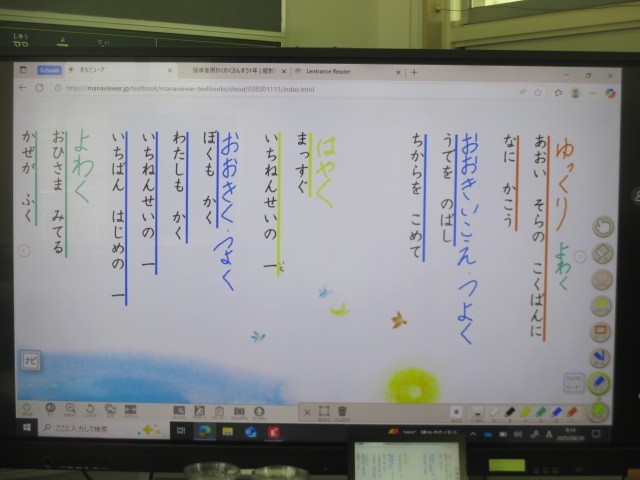 Lentrance Reader
https://manaviewer.jp/textbook/manaviewer-textbooks/cloud/030301111/index.html
ゆっくり よわく
あおい そらの こくばんに
なに かこう
おおきいこえ・つよく
うでを のばし
ちからを こめて
はやく
まっすぐ
いちねんせいの 一
おおきく・つよく
ぼくも かく
わたしも かく
いちねんせいの 一
いちばん はじめの 一
よわく
おひさま みてる
かぜが ふく
ナビ
ここに入力して検索